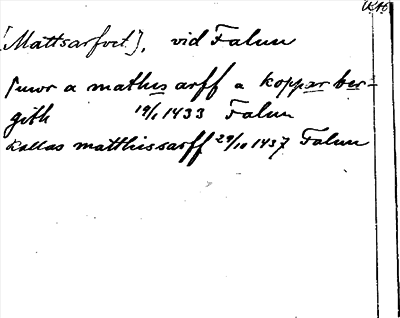 [Mattsarfvet], vid Falun
j nwor a mathis arff a koppar ber-
gith 19/1 1433 Falun
kallas matthissarff 29/10 1437 Falun